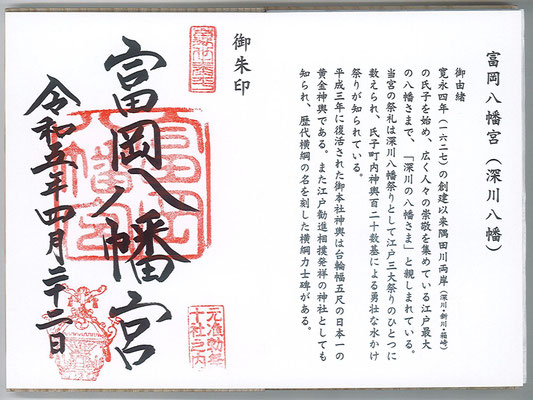 富岡八幡宮（深川八幡）
御由緒
寛永四年（一六二七）の創建以来隅田川両岸（深川・新川・箱崎）
の氏子を始め、広く人々の崇敬を集めている江戸最大
の八幡さまで、「深川の八幡さま」と親しまれている。
当宮の祭礼は深川八幡祭りとして江戸三大祭りのひとつに
数えられ、氏子町内神輿百二十数基による勇壮な水かけ
祭りが知られている。
平成三年に復活された御本社神輿は台輪幅五尺の日本一の
黄金神輿である。また江戸勧進相撲発祥の神社としても
知られ、歴代横綱の名を刻した横綱力士碑がある。
御朱印
富岡八幡宮
令和五年四月二十二日